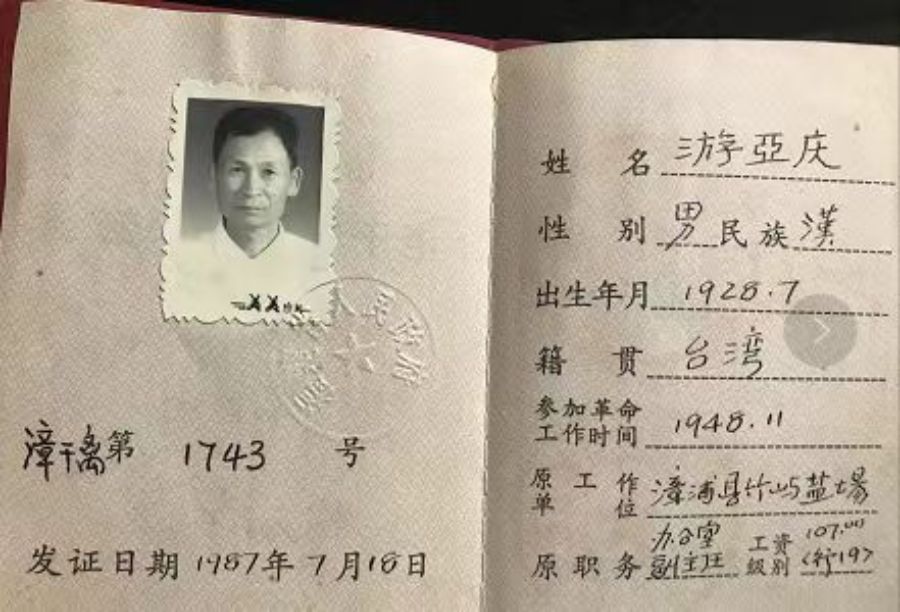 漳干离第 1743 号
发证日期 1987年7月18日
姓名 游亞庆
性别 男 民族 漢
出生年月 1928.7
籍贯 台湾
参加革命工作时间 1948.11
原工作单位 漳浦县竹屿盐場
原职务 办公室副主任 工资级别 107.00 (行19)
人民政府